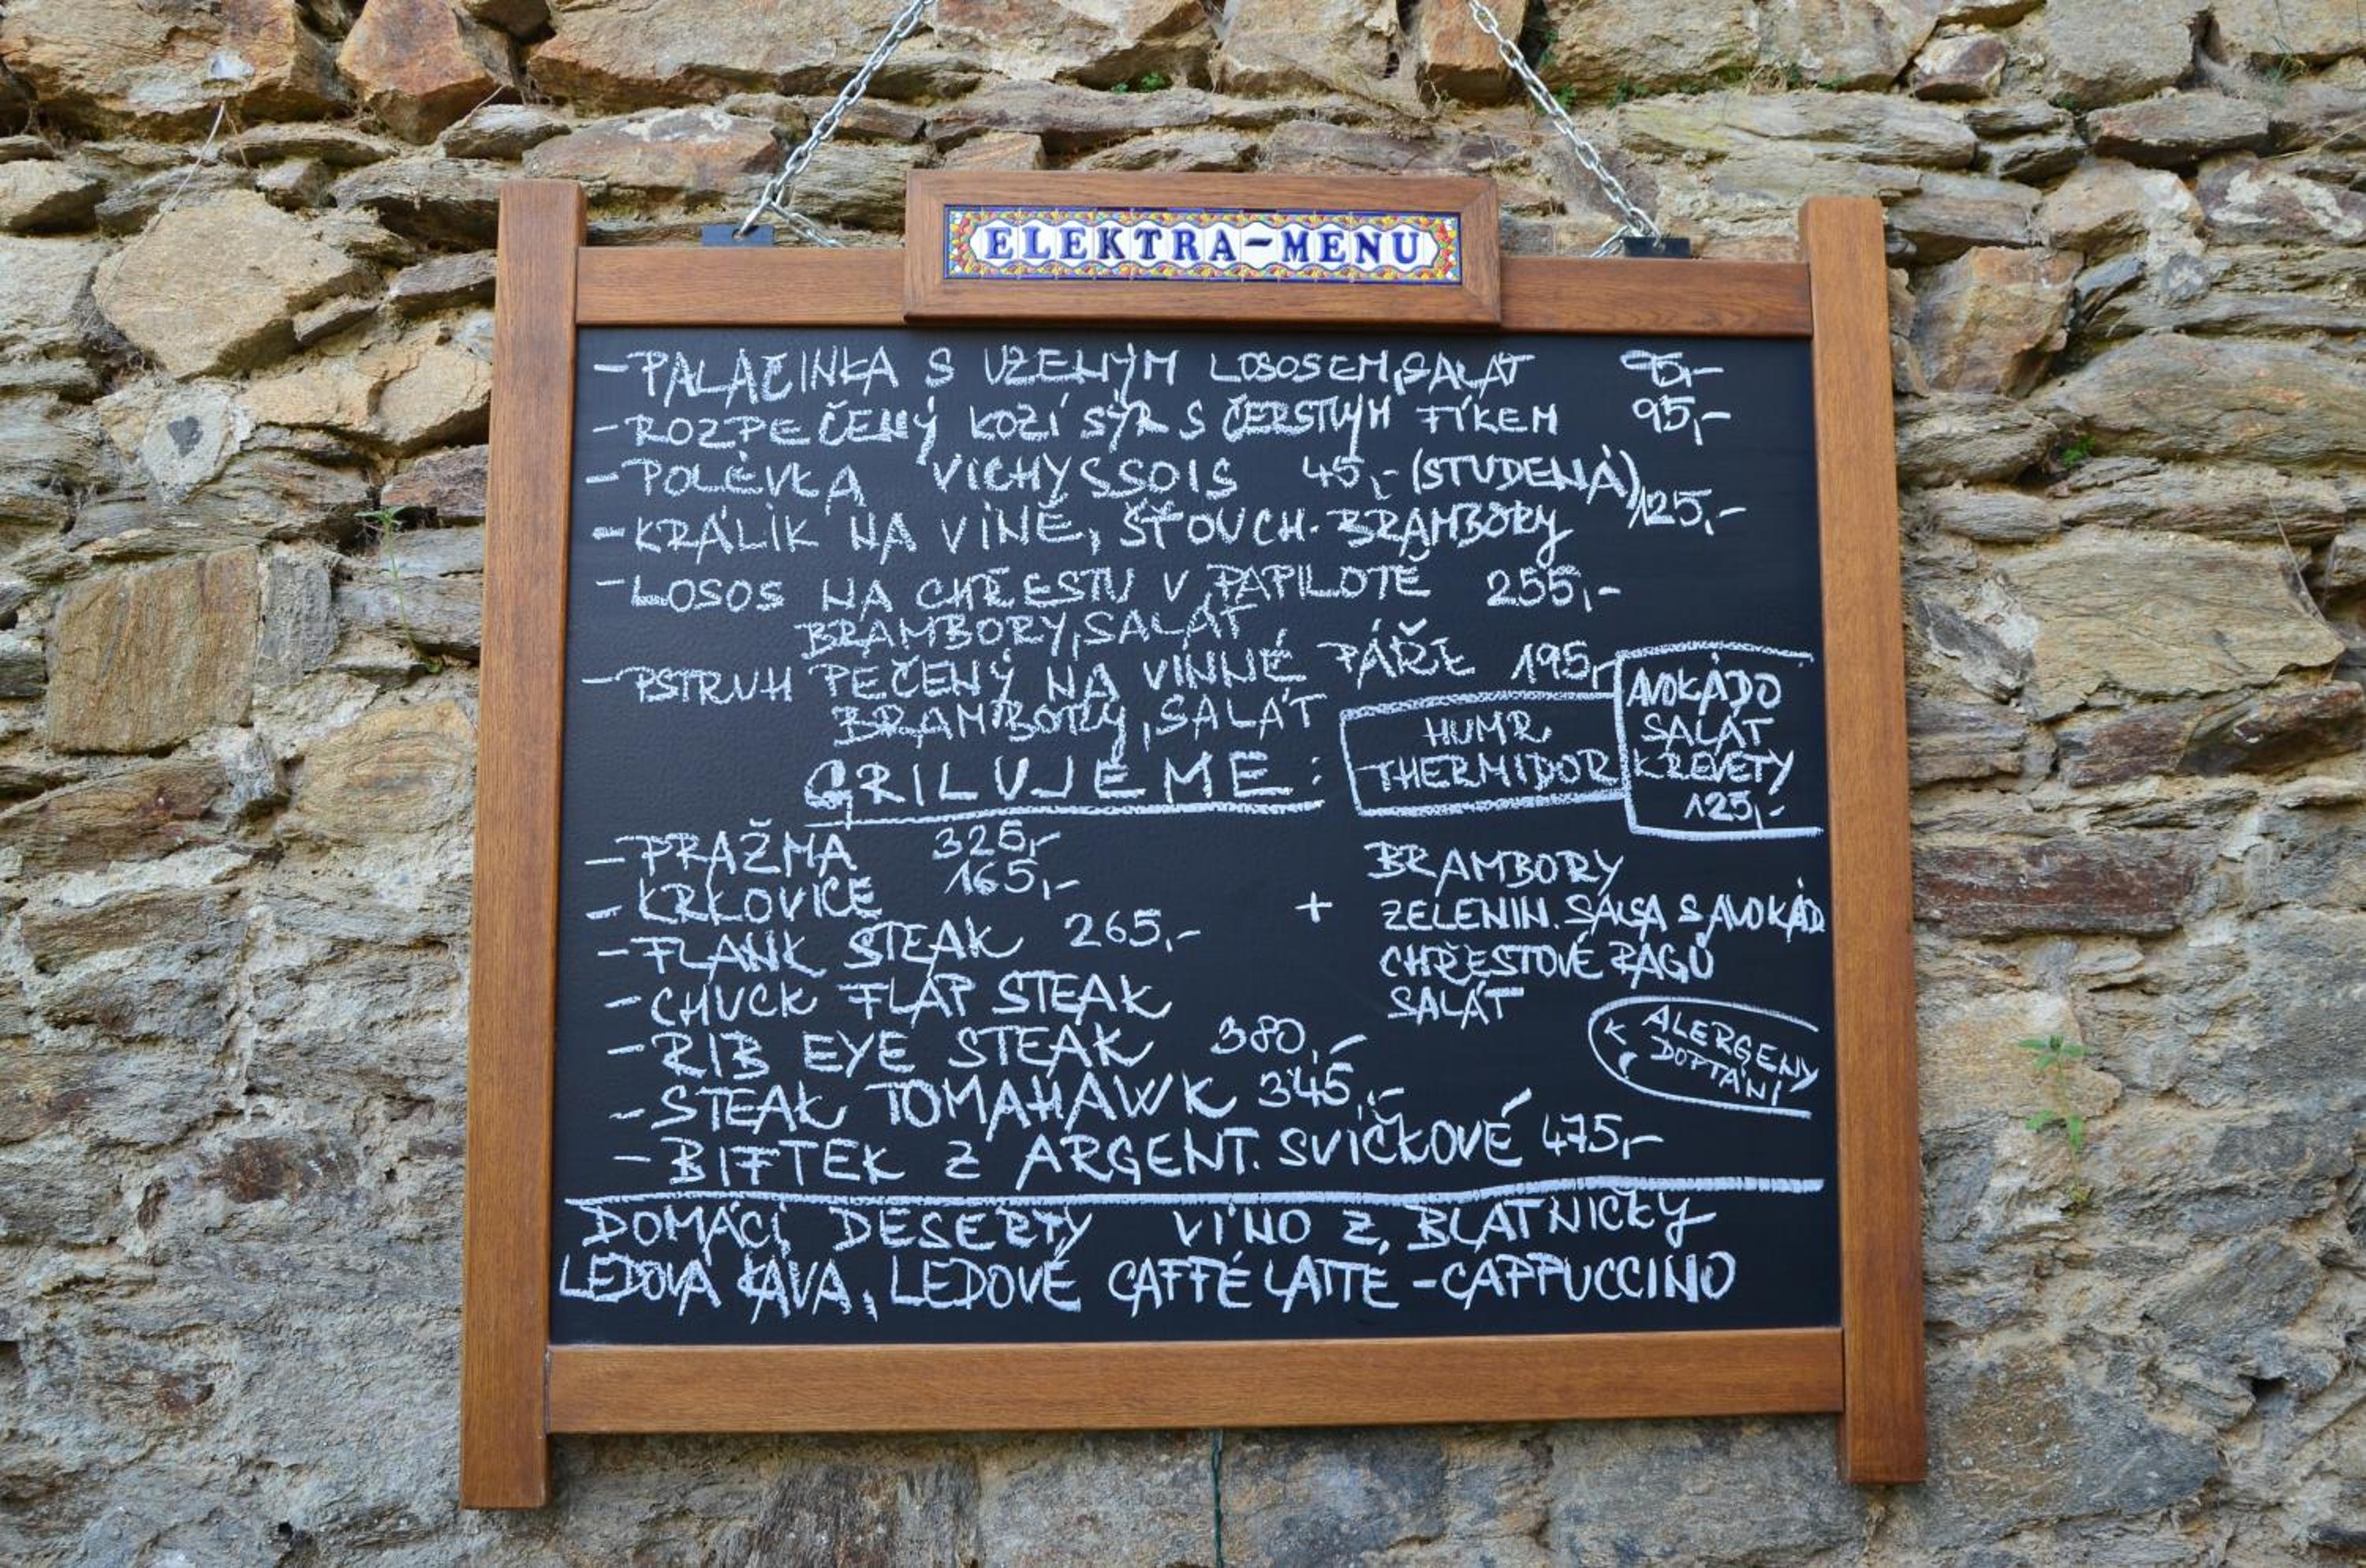 ELEKTRA-MENU
-PALAČINKA S UZENÝM LOSOSEM, SALÁT 95,-
-ROZPEČENÝ KOZÍ SÝR S ČERSTVÝM FÍKEM 95,-
-POLÉVKA VICHYSSOIS 45,- (STUDENÁ)
-KRÁLÍK NA VÍNĚ, ŠŤOUCH. BRAMBORY 125,-
-LOSOS NA CHŘESTU V PAPILOTĚ 255,-
BRAMBORY, SALÁT
-PSTRUH PEČENÝ NA VINNÉ PÁŘE 195,-
BRAMBORY, SALÁT
HUMR
THERMIDOR
AVOKÁDO
SALÁT
KREVETY
125,-
GRILUJEME:
-PRAŽMA 325,-
-KRKOVICE 165,-
-FLANK STEAK 265,-
-CHUCK FLAP STEAK
-RIB EYE STEAK 380,-
-STEAK TOMAHAWK 345,-
-BIFTEK Z ARGENT. SVÍČKOVÉ 475,-
+ BRAMBORY
ZELENIN. SALSA S AVOKÁD
CHŘESTOVÉ RAGÚ
SALÁT
ALERGENY
K DOPTÁNÍ
DOMÁCÍ DESERTY VÍNO Z BLATNIČKY
LEDOVÁ KÁVA, LEDOVÉ CAFFÉ LATTE - CAPPUCCINO